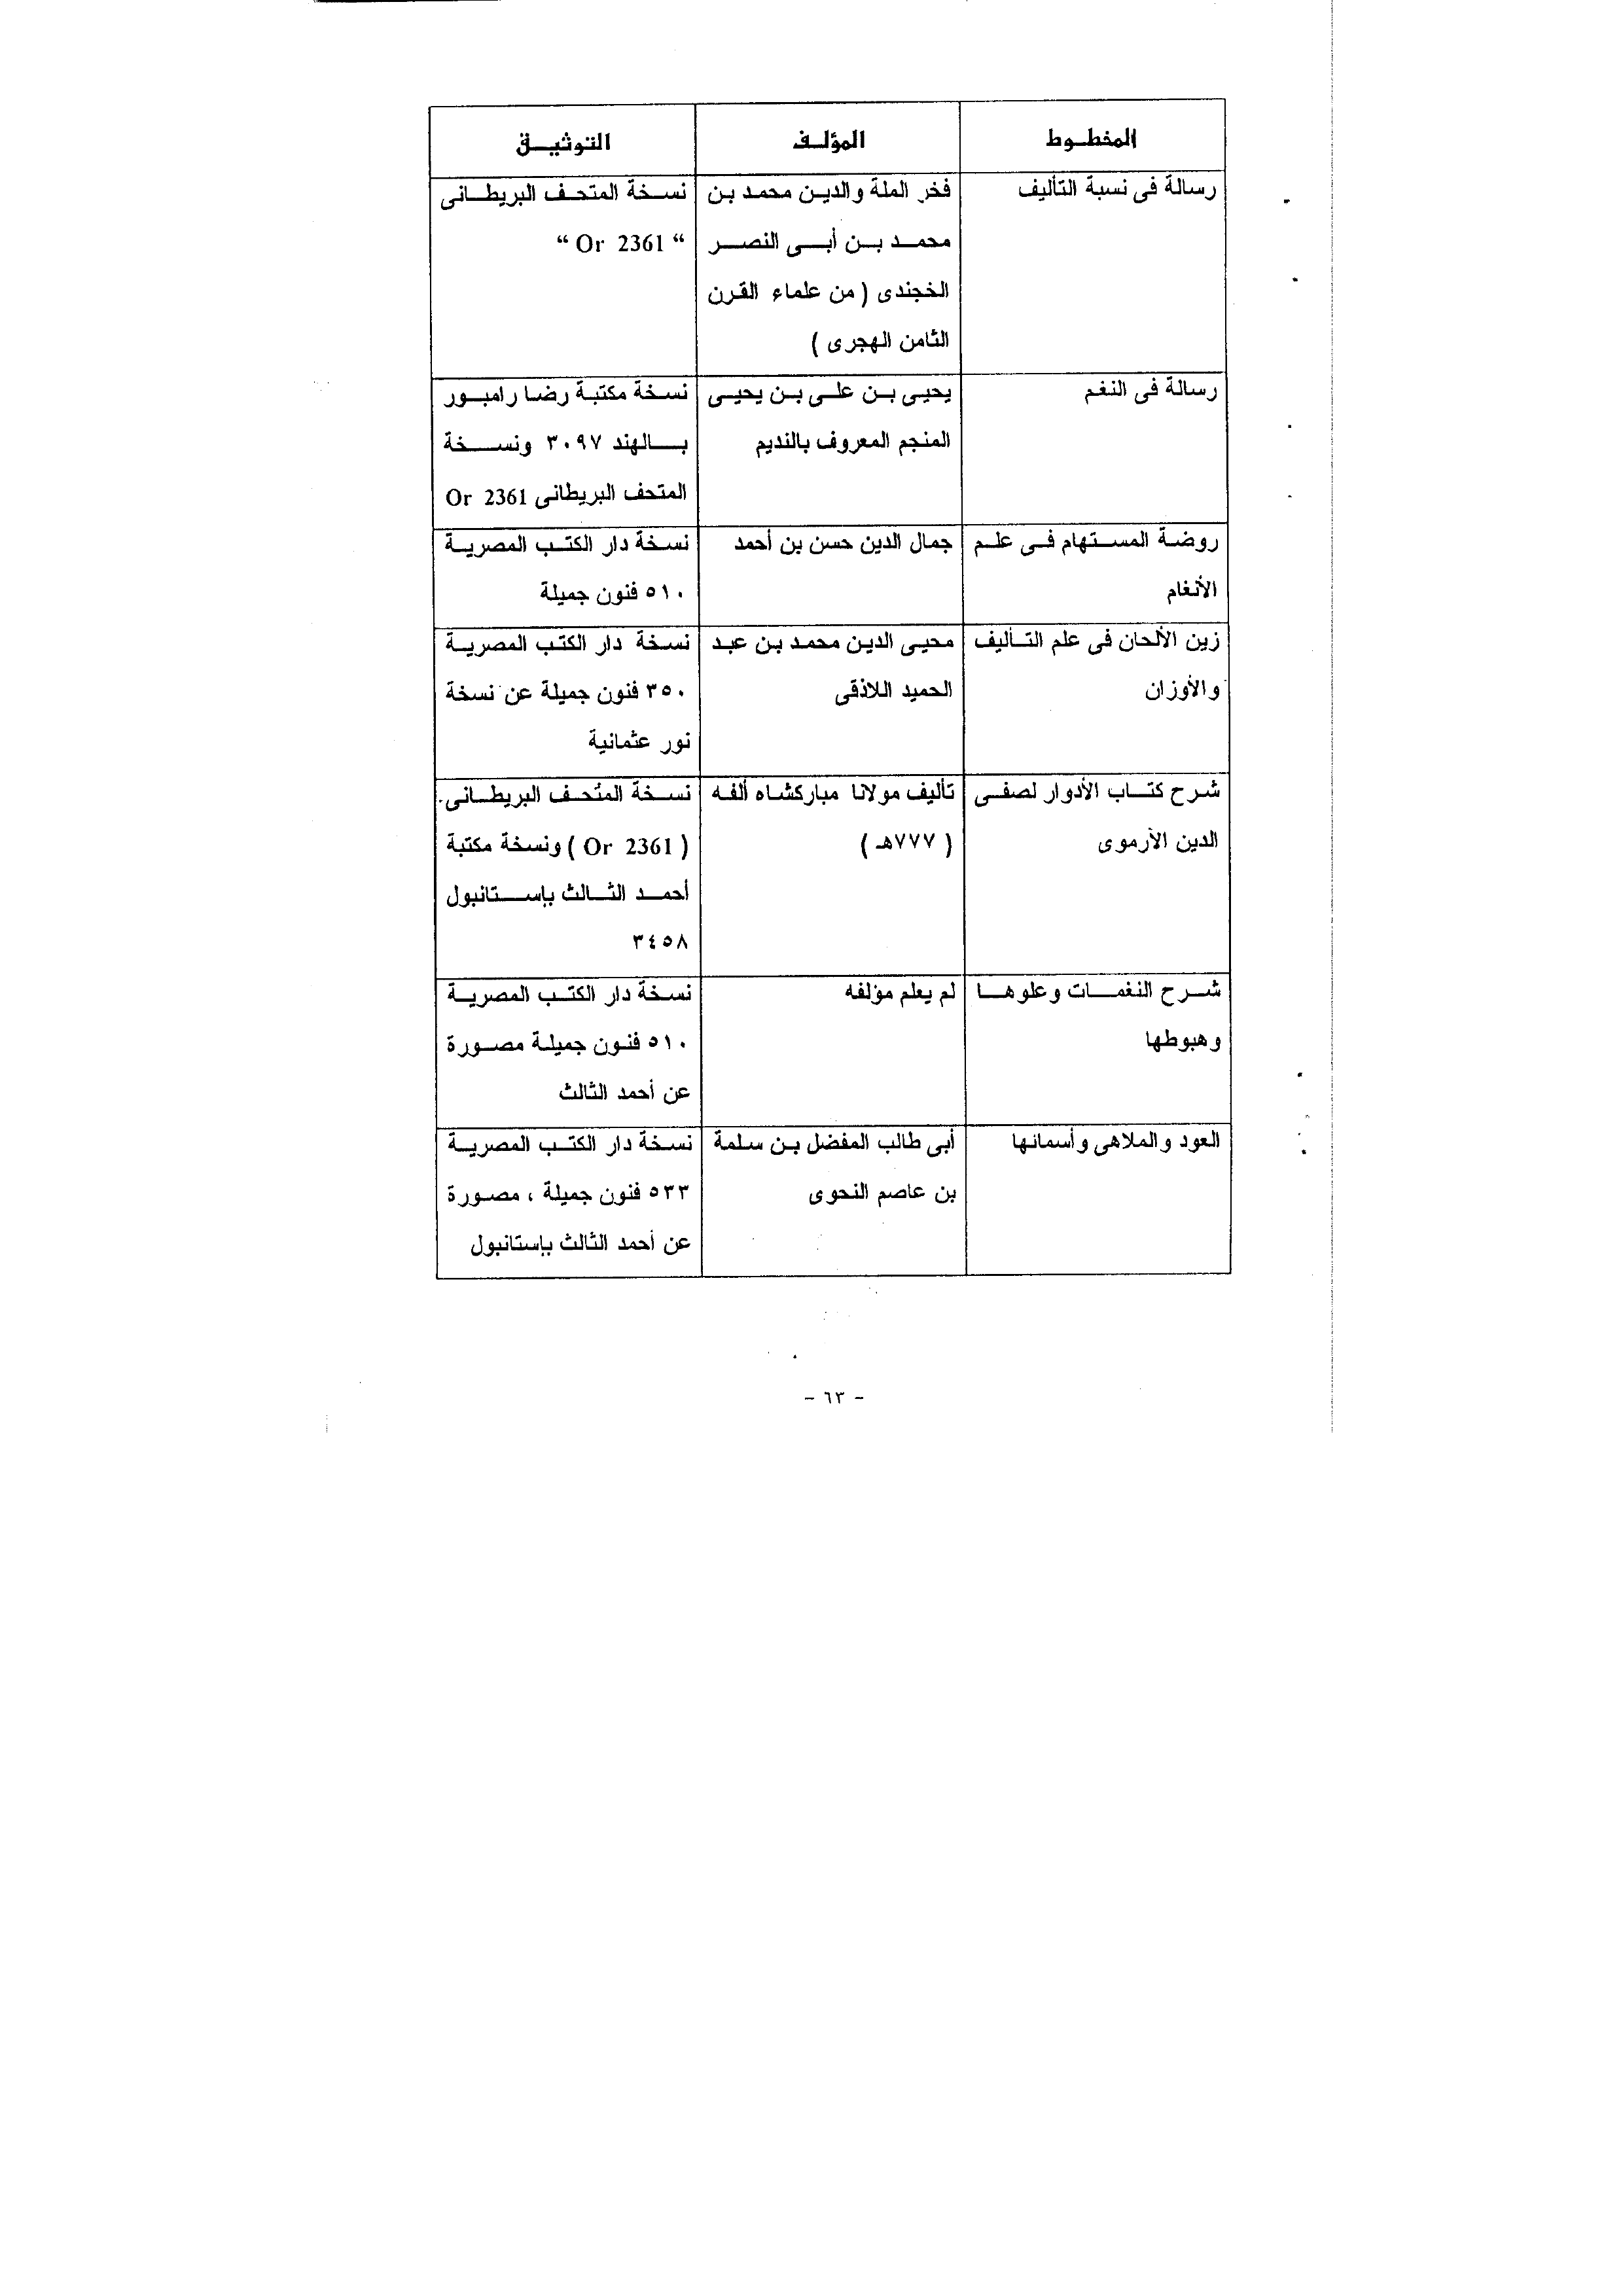 المخطوط المؤلف التوثيق
رسالة فى نسبة التأليف
فخر الملة والدين محمد بن
محمد بن أبى النصر
الخجندى ( من علماء القرن
الثامن الهجرى )
نسخة المتحف البريطانى
“ Or 2361 “
رسالة فى النغم
يحيى بن على بن يحيى
المنجم المعروف بالنديم
نسخة مكتبة رضا رامبور
بالهند ٣٠٩٧ ونسخة
المتحف البريطانى Or 2361
روضة المستهام فى علم
الأنغام
جمال الدين حسن بن أحمد
نسخة دار الكتب المصرية
٥١٠ فنون جميلة
زين الألحان فى علم التأليف
والأوزان
محيى الدين محمد بن عبد
الحميد اللاذقى
نسخة دار الكتب المصرية
٣٥٠ فنون جميلة عن نسخة
نور عثمانية
شرح كتاب الأدوار لصفى
الدين الأرموى
تأليف مولانا مباركشاه ألفه
( ٧٧٧هـ )
نسخة المتحف البريطانى
( Or 2361 ) ونسخة مكتبة
أحمد الثالث بإستانبول
٣٤٥٨
شرح النغمات وعلوها
وهبوطها
لم يعلم مؤلفه
نسخة دار الكتب المصرية
٥١٠ فنون جميلة مصورة
عن أحمد الثالث
العود والملاهى وأسمانها
أبى طالب المفضل بن سلمة
بن عاصم النحوى
نسخة دار الكتب المصرية
٥٣٣ فنون جميلة ، مصورة
عن أحمد الثالث بإستانبول
- ٦٣ -